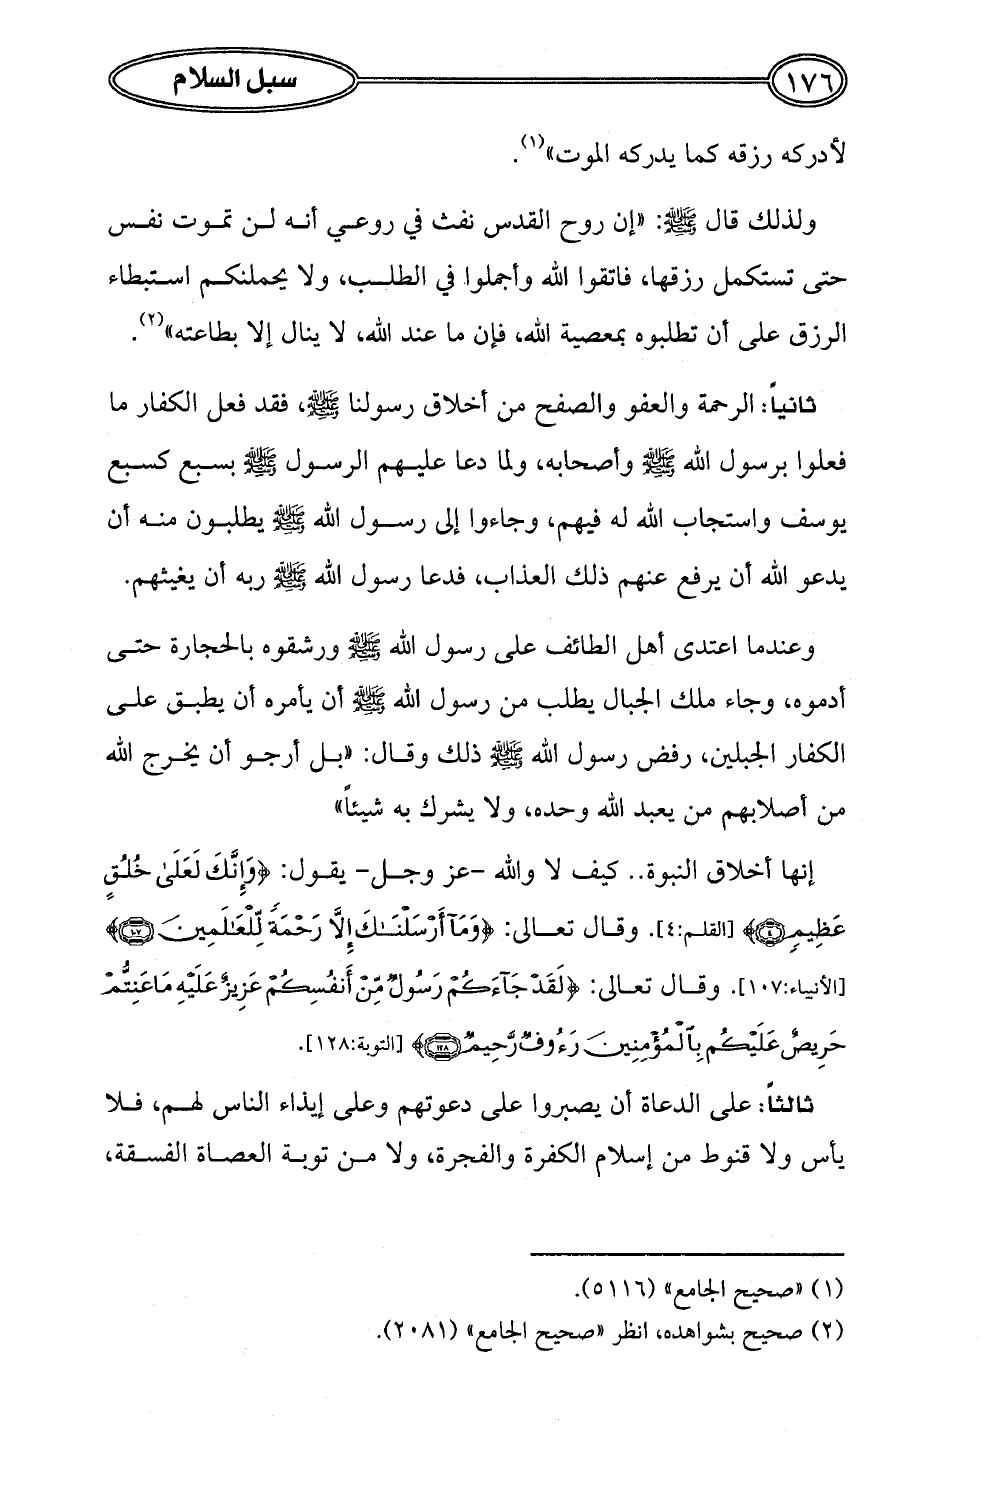 ١٧٦ سبل السلام
لأدركه رزقه كما يدركه الموت»(١).
ولذلك قال ﷺ: «إن روح القدس نفث في روعي أنه لن تموت نفس
حتى تستكمل رزقها، فاتقوا الله وأجملوا في الطلب، ولا يحملنكم استبطاء
الرزق على أن تطلبوه بمعصية الله، فإن ما عند الله، لا ينال إلا بطاعته»(٢).
ثانياً: الرحمة والعفو والصفح من أخلاق رسولنا ﷺ، فقد فعل الكفار ما
فعلوا برسول الله ﷺ وأصحابه، ولما دعا عليهم الرسول ﷺ بسبع كسبع
يوسف واستجاب الله له فيهم، وجاءوا إلى رسول الله ﷺ يطلبون منه أن
يدعو الله أن يرفع عنهم ذلك العذاب، فدعا رسول الله ﷺ ربه أن يغيثهم.
وعندما اعتدى أهل الطائف على رسول الله ﷺ ورشقوه بالحجارة حتى
أدموه، وجاء ملك الجبال يطلب من رسول الله ﷺ أن يأمره أن يطبق على
الكفار الجبلين، رفض رسول الله ﷺ ذلك وقال: «بل أرجو أن يخرج الله
من أصلابهم من يعبد الله وحده، ولا يشرك به شيئاً»
إنها أخلاق النبوة.. كيف لا والله -عز وجل- يقول: ﴿وَإِنَّكَ لَعَلَىٰ خُلُقٍ
عَظِيمٍ ٤﴾ [القلم:٤]. وقال تعالى: ﴿وَمَآ أَرْسَلْنَـٰكَ إِلَّا رَحْمَةً لِّلْعَـٰلَمِينَ ١٠٧﴾
[الأنبياء:١٠٧]. وقال تعالى: ﴿لَقَدْ جَآءَكُمْ رَسُولٌ مِّنْ أَنفُسِكُمْ عَزِيزٌ عَلَيْهِ مَا عَنِتُّمْ
حَرِيصٌ عَلَيْكُم بِٱلْمُؤْمِنِينَ رَءُوفٌ رَّحِيمٌ ١٢٨﴾ [التوبة:١٢٨].
ثالثاً: على الدعاة أن يصبروا على دعوتهم وعلى إيذاء الناس لهم، فلا
يأس ولا قنوط من إسلام الكفرة والفجرة، ولا من توبة العصاة الفسقة،
(١) «صحيح الجامع» (٥١١٦).
(٢) صحيح بشواهده، انظر «صحيح الجامع» (٢٠٨١).